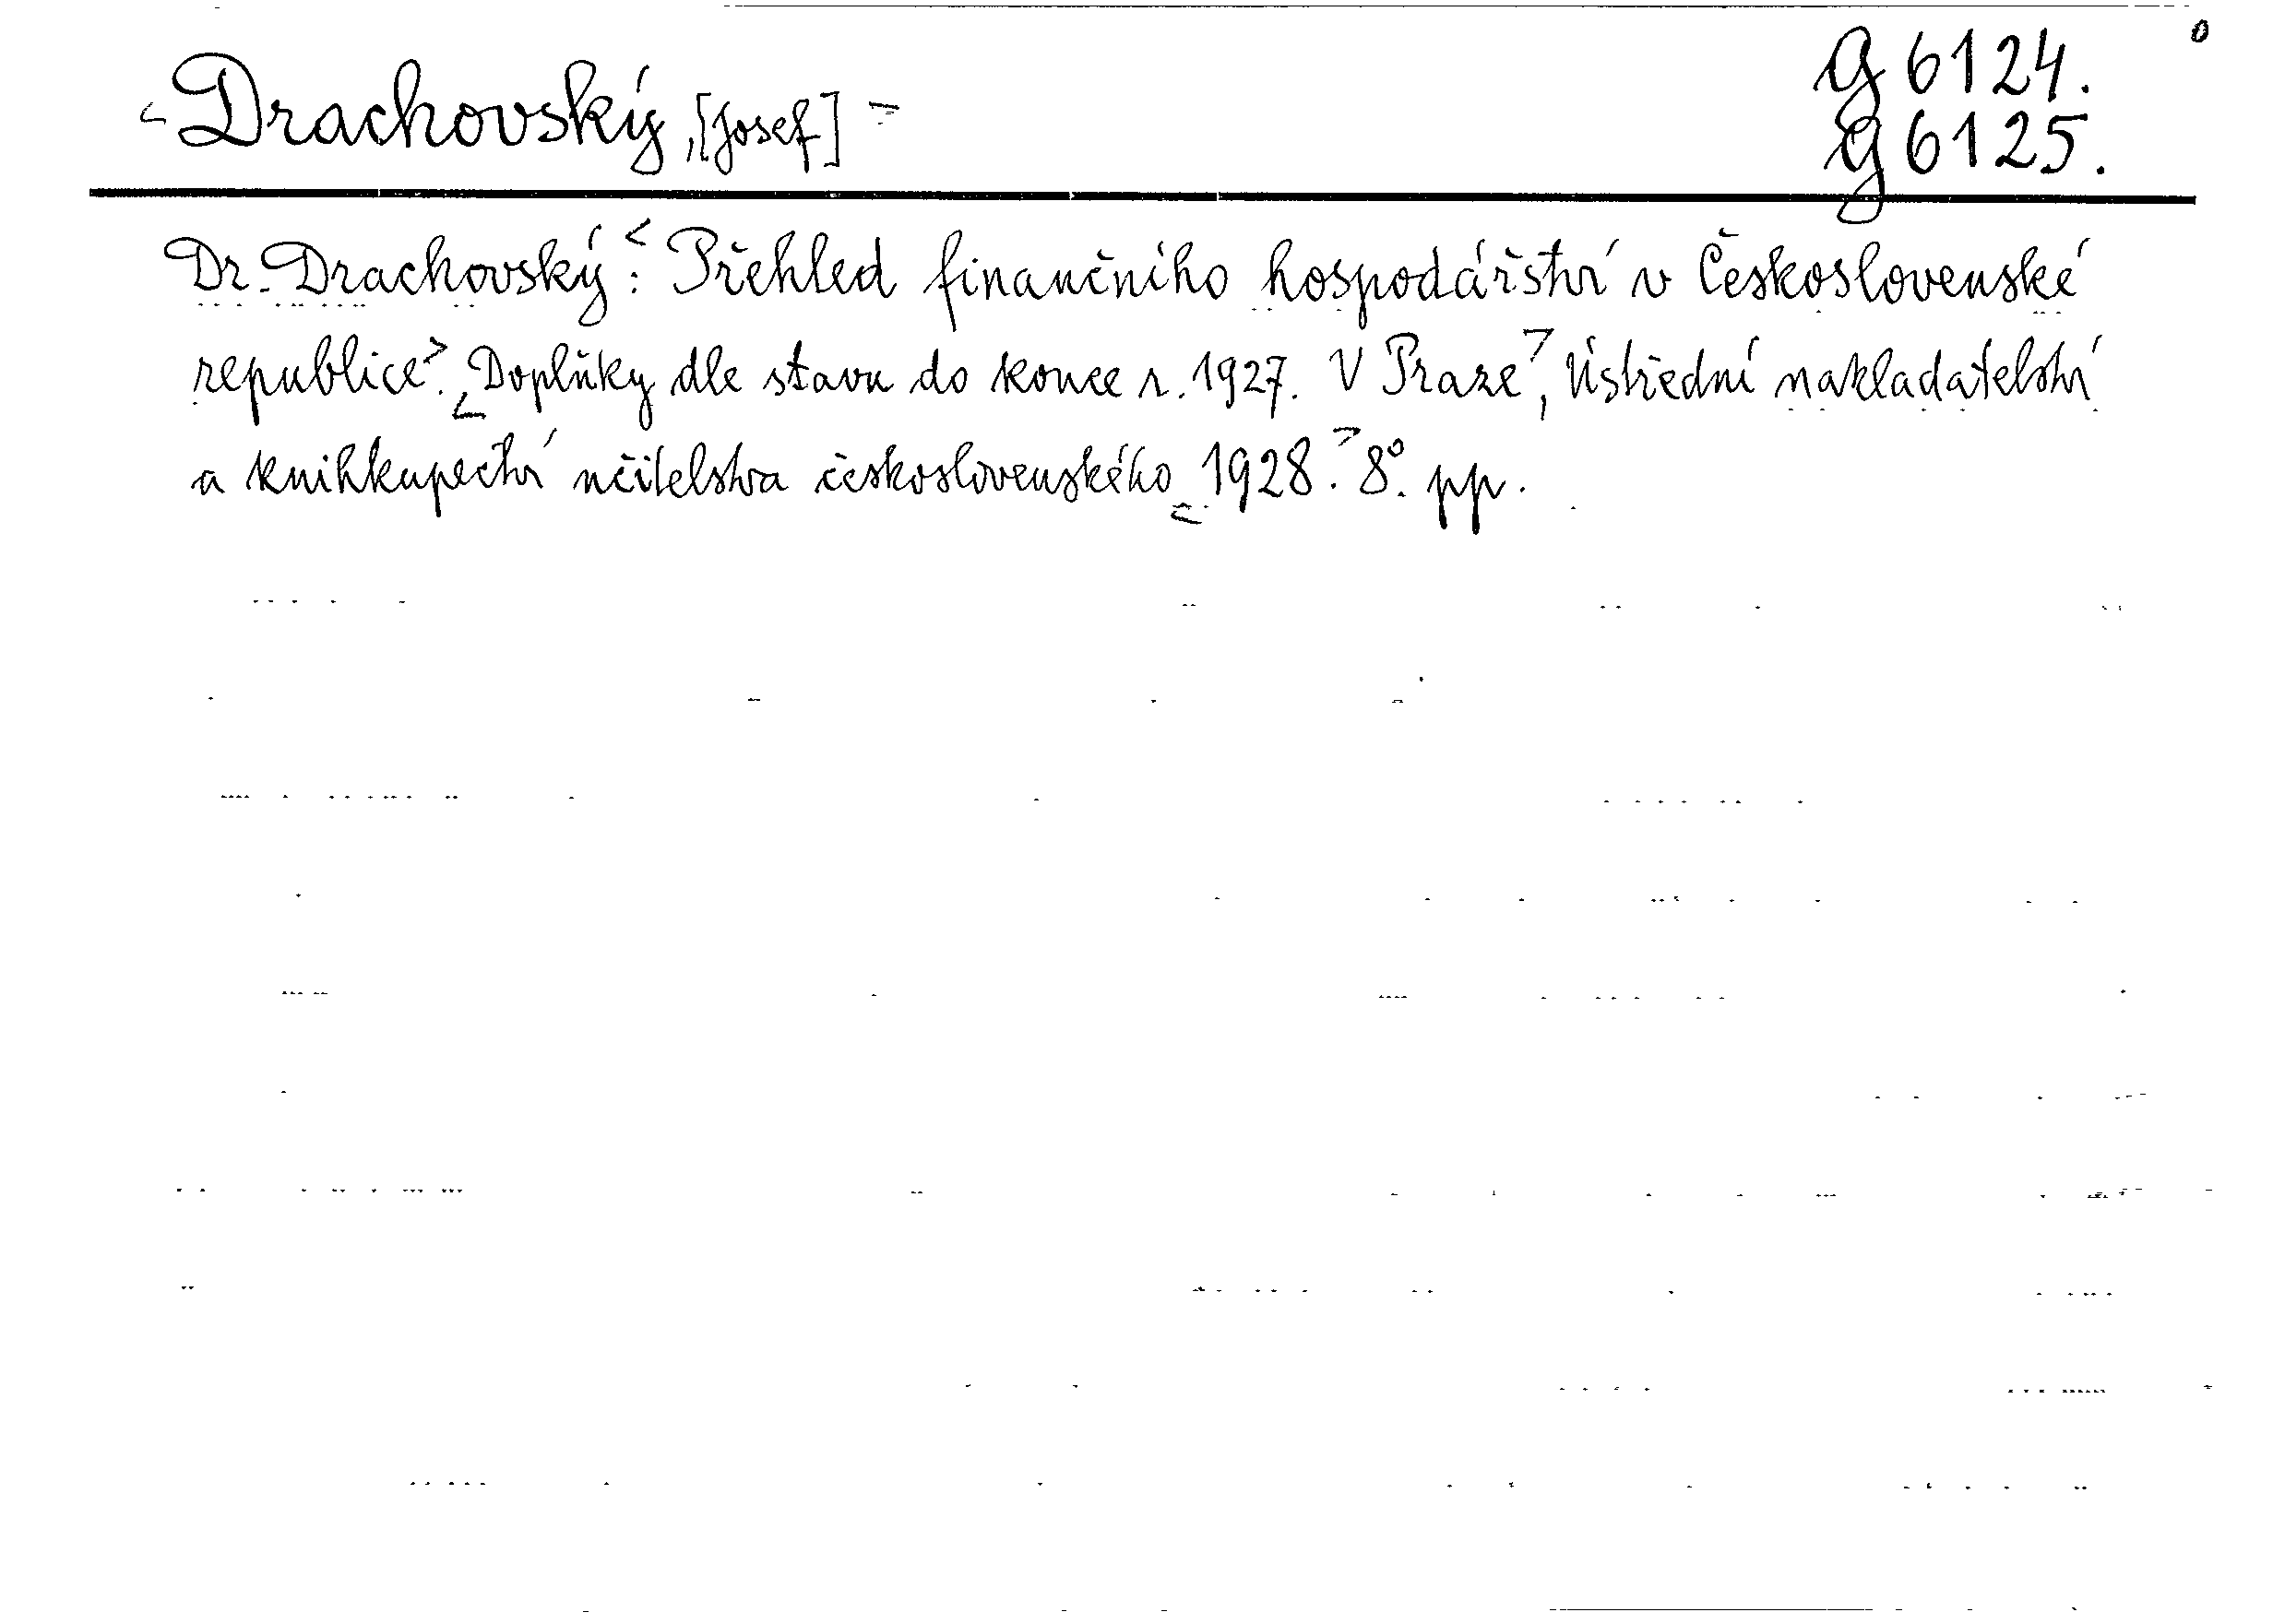 <Drachovský, [Josef]> g 6124.
g 6125.
Dr. Drachovský: <Přehled finančního hospodářství v Československé
republice>. <Doplňky dle stavu do konce r. 1927. V Praze>, Ústřední nakladatelství
a knihkupectví učitelstva československého <1928.> 8°. pp.